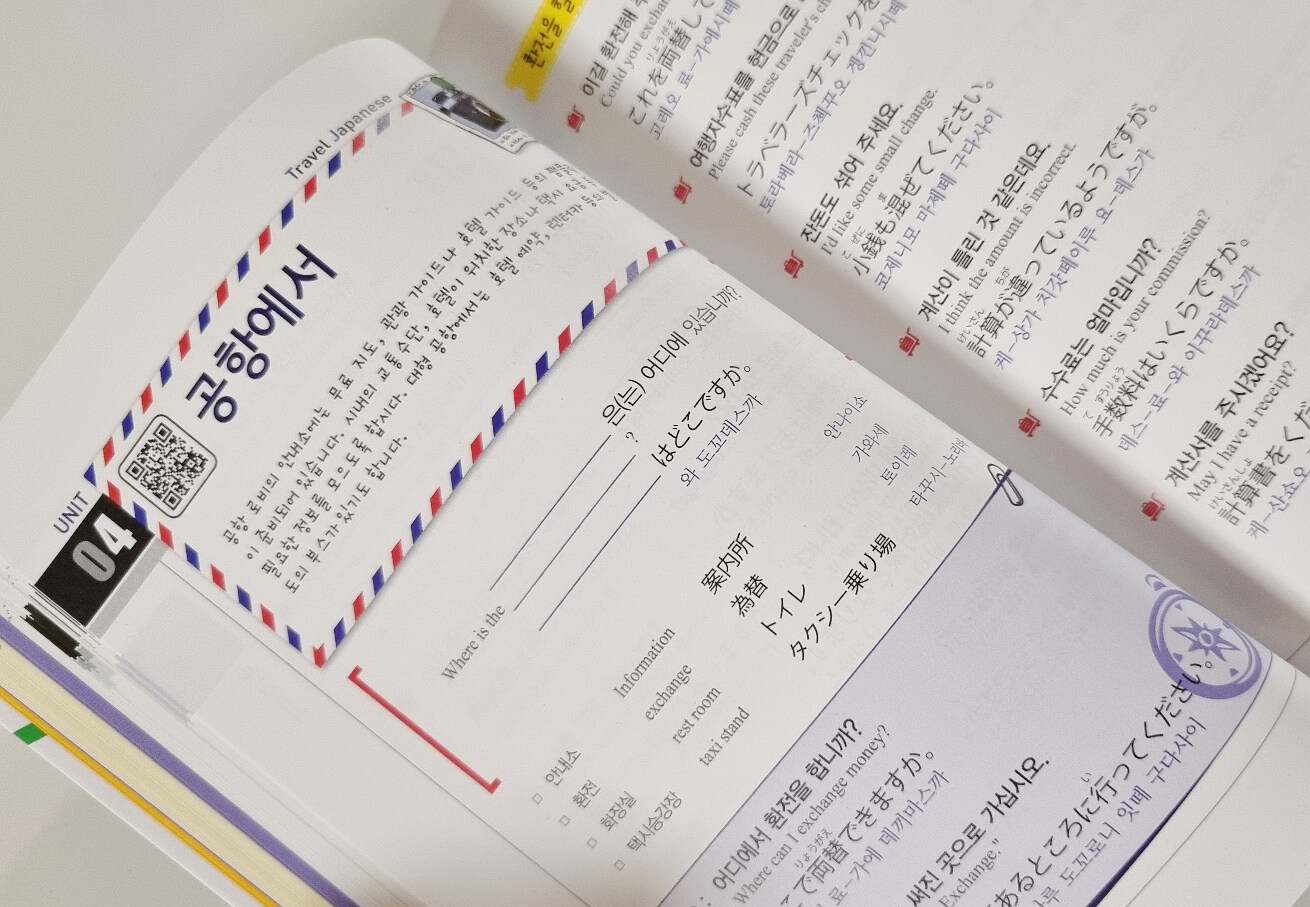 Travel Japanese
UNIT
04
공항에서
공항 로비의 안내소에는 무료 지도, 관광 가이드나 호텔 가이드 등의
이 준비되어 있습니다. 시내의 교통 수단, 호텔이 위치한 장소나 택시
필요한 정보를 모으도록 합시다. 대형 공항에서는 호텔 예약, 렌터카 등의
도의 부스가 있기도 합니다.
은(는) 어디에 있습니까?
Where is the ?
はどこですか。
와 도꼬데스까
안내소 Information 案内所 안나이쇼
환전 exchange 為替 가와세
화장실 rest room トイレ 토이레
택시승강장 taxi stand タクシー乗り場 타꾸시-노리바
어디에서 환전을 합니까?
Where can I exchange money?
りょうがえ
で両替できますか。
료-가에 데끼마스까
써진 곳으로 가십시오.
Exchange."
い
あるところに行ってください。
도꼬로니 잇떼 구다사이
환전을
이걸 환전해
Could you exchan
りょうがえ
これを両替して
고레오 료-가에시떼
여행자수표를 현금으로
Please cash these traveler's ch
トラベラーズチェックを
토라베라-즈첵꾸오 겡낀니시떼
잔돈도 섞어 주세요.
I'd like some small change.
こぜに ま
小銭も混ぜてください。
코제니모 마제떼 구다사이
계산이 틀린 것 같은데요.
I think the amount is incorrect.
けいさん ちが
計算が違っているようですか。
케-상가 치갓떼이루 요-데스가
수수료는 얼마입니까?
How much is your commission?
て すうりょう
手数料はいくらですか。
데스-료-와 이꾸라데스까
계산서를 주시겠어요?
May I have a receipt?
けいさんしょ
計算書をくだ
케-산쇼오